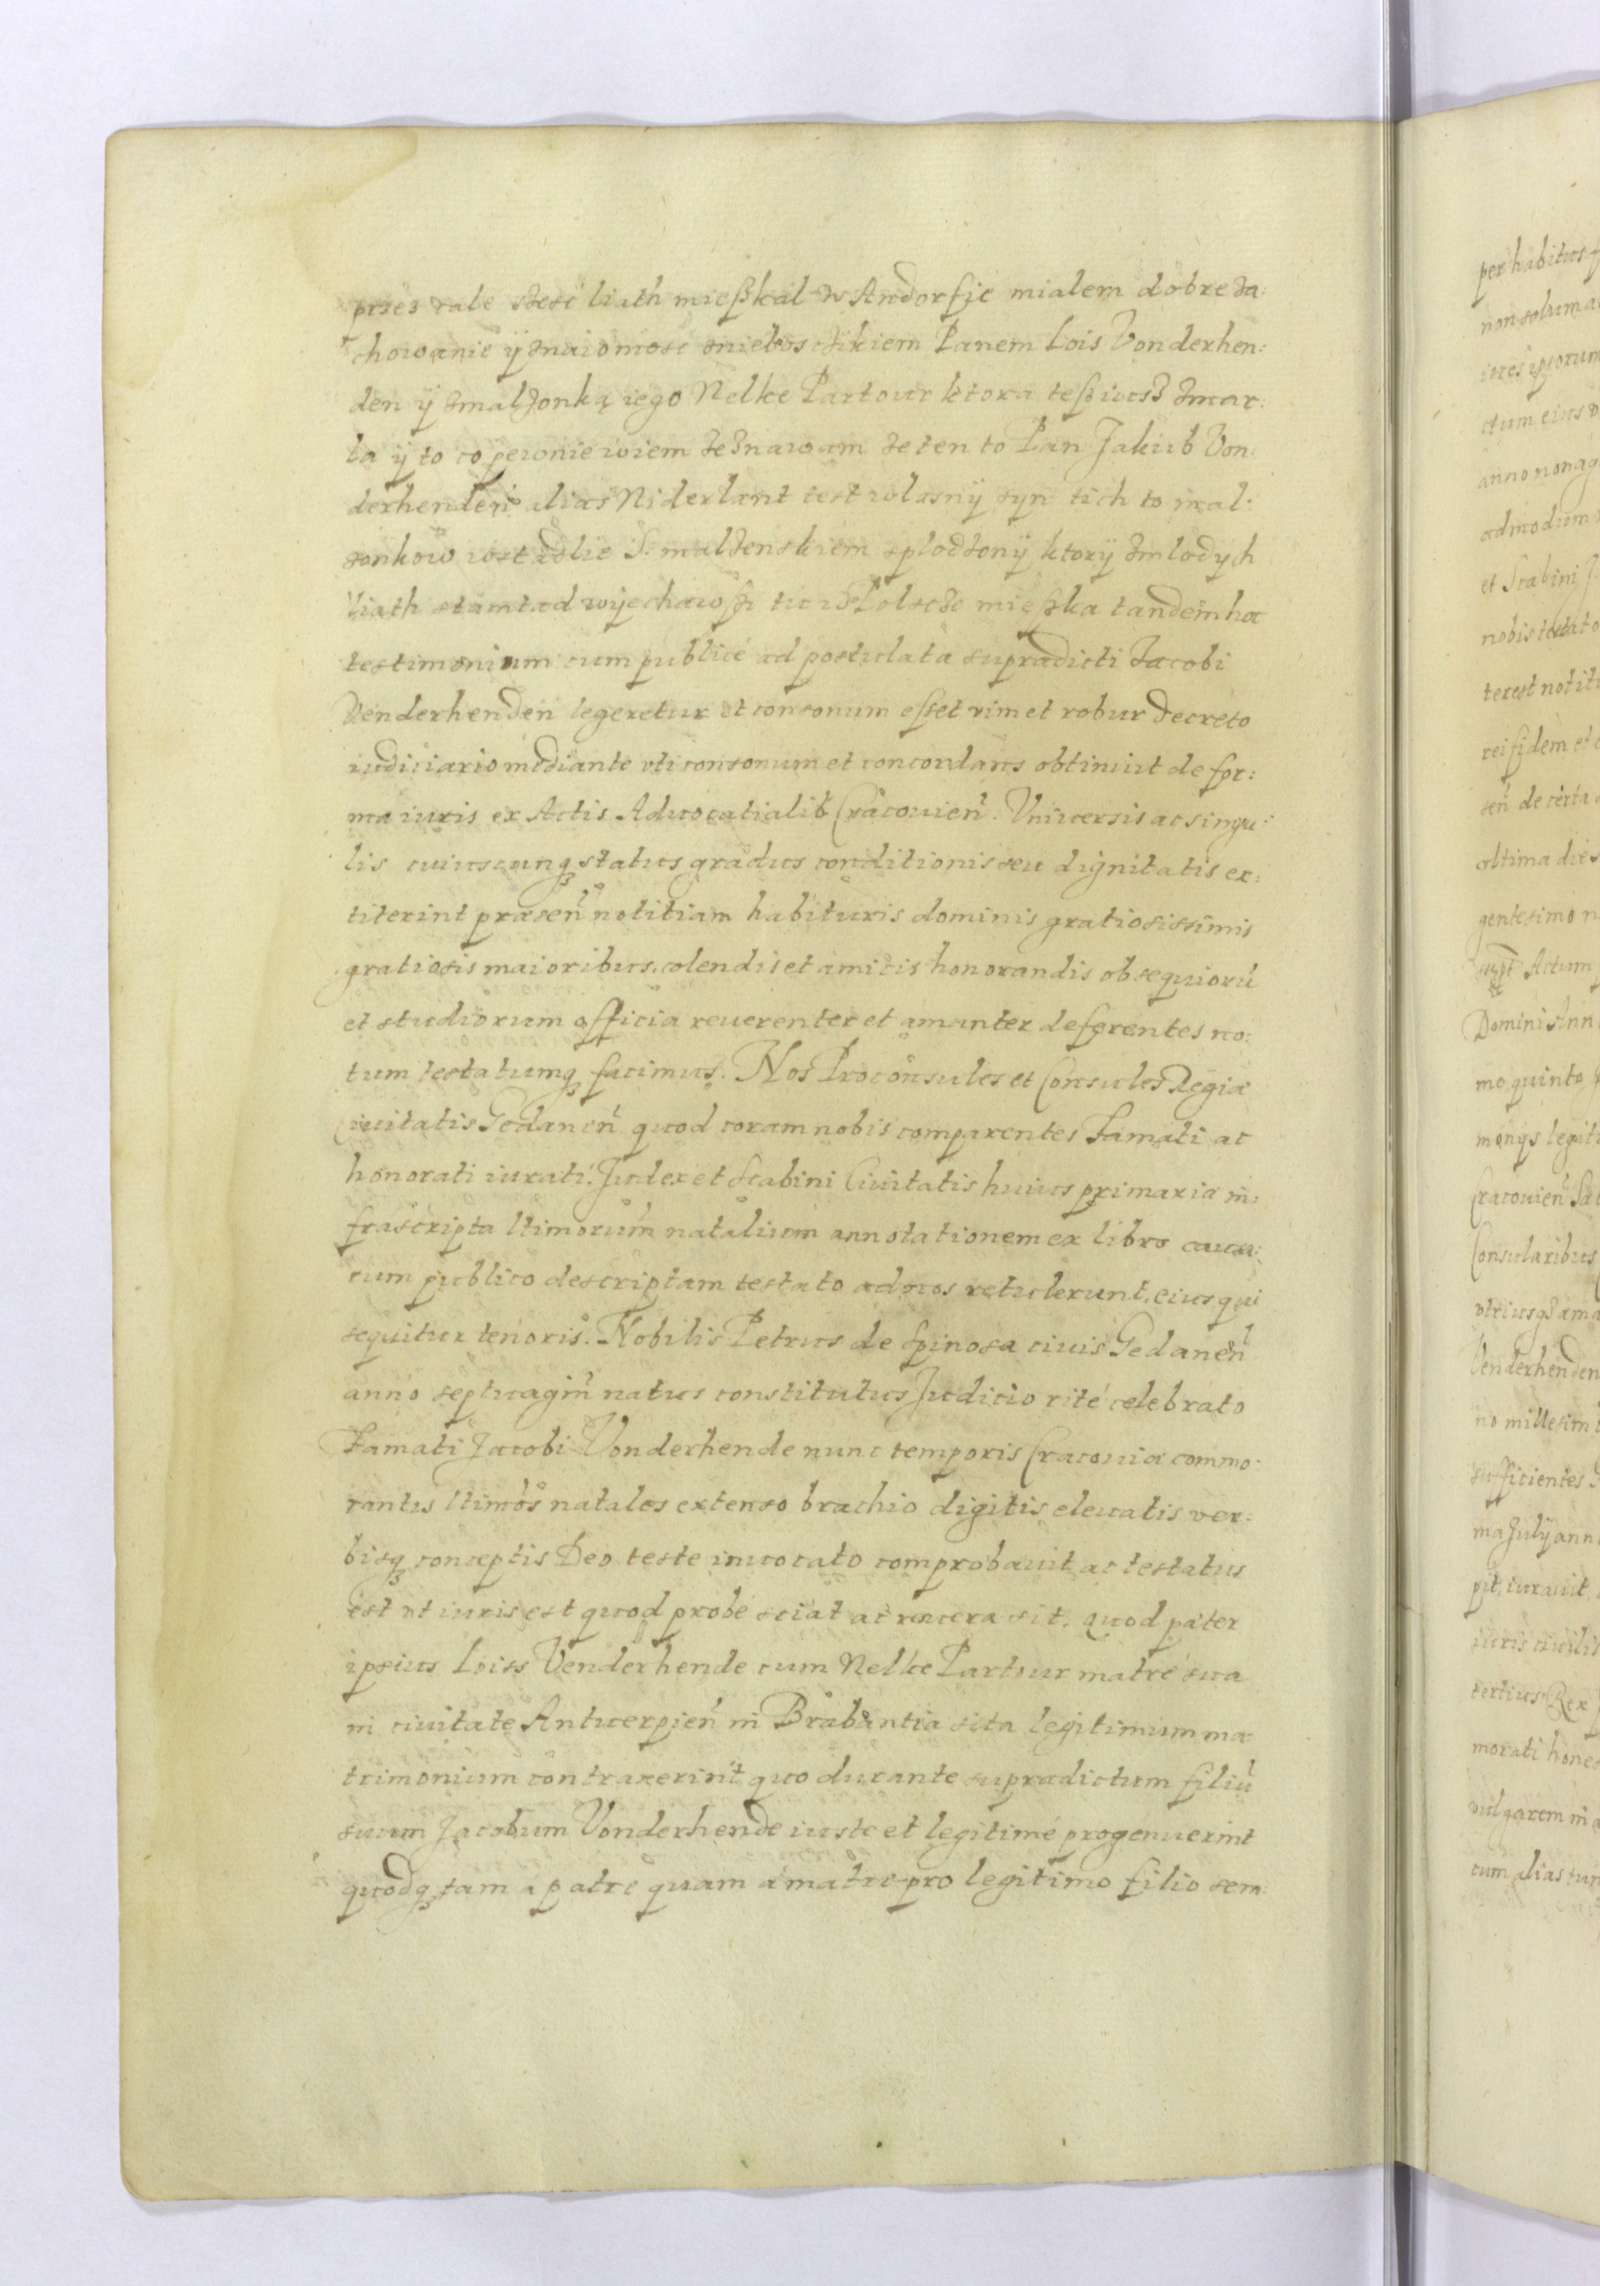 przes cale szesc liath mießkal w Andorfie mialem dobre za:
chowanie ÿ znaiomosc zniebosczikiem Panem Lois Vonderhen:
den ÿ zmalzonką iego Nelke Partour ktora teß iusz zmar:
la ÿ to co pewnie wiem zeznawam ze ten to Pan Jakub Von:
derhenden alias Niderlant iest wlasnÿ syn tich to mal:
zonkow wstadlie S. malzenskiem splodzonÿ ktorÿ zmlodych
liath stamtad wÿechawßi tu w Polscze mießka tandem hoc
testimonium cum publicé ad postulata supradicti Jacobi
Venderhenden legeretur et consonum esset vim et robur decreto
iudiciario mediante vti consonum et concordans obtinuit de for:
ma iuris ex Actis Aduocatialib Cracouien. Vniuersis ac singu:
lis cuiuscunq status gradus conditionis seu dignitatis ex:
titerint præsen notitiam habituris dominis gratiosissimis
gratiosis maioribus colendis et amicis honorandis obsequiorū
et studiorum officia reuerenter et amanter deferentes no:
tum testatumq facimus. Nos Proconsules et Consules Regiæ
Ciuitatis Gedanen quod coram nobis comparentes Famati ac
honorati iurati Judex et Scabini Ciuitatis huius primaria in:
frascripta ltimorum natalium annotationem ex libro causa:
rum publico descriptam testato ad nos retulerunt, eius qui
sequitur tenoris. Nobilis Petrus de Spinosa ciuis Gedanen
anno septuagin natus constitutus Judicio rité celebrato
Famati Jacobi Vonderhende nunc temporis Cracouiæ commo:
rantis ltimos natales extenso brachio digitis eleuatis ver:
bisq conceptis Deo teste inuocato comprobauit ac testatus
est vt iuris est quod probe sciat ac vera sit, quod pater
ipsius Loiss Venderhende cum Nelke Partour matre sua
in ciuitate Antuerpien in Brabantia sita legitimum ma
trimonium contraxerint quo durante supradictum filiū
suum Jacobum Vonderhende iuste et legitimé progenuerint
quodq tam a patre quam a matre pro legitimo filio sem: